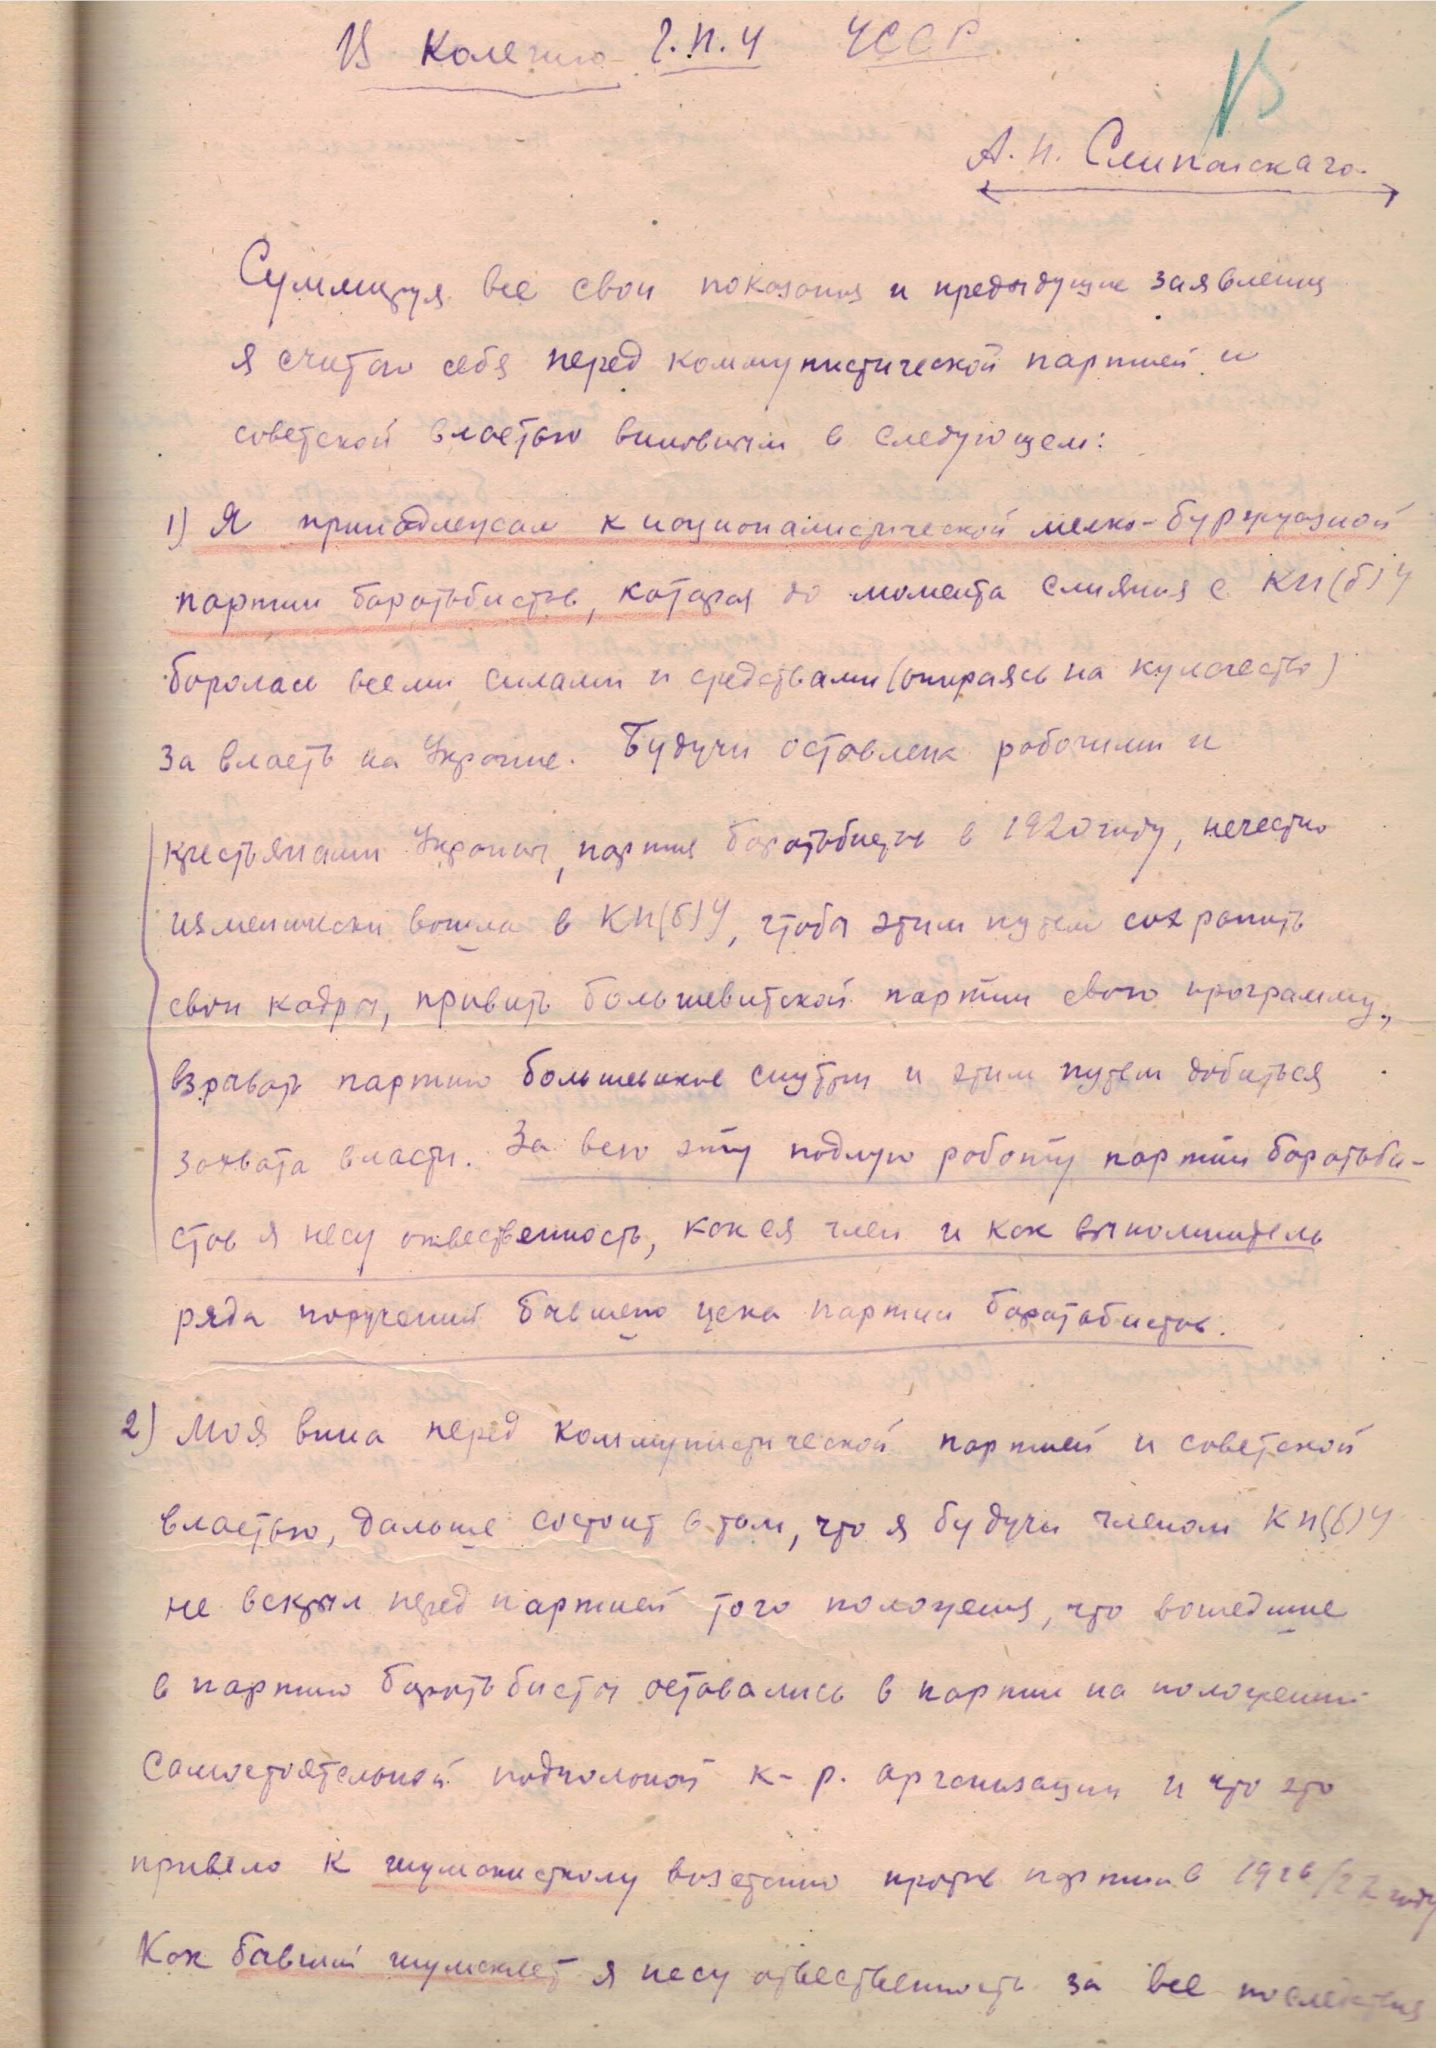 В Колегию Г.П.У УССР
А. П. Слипанскаго.
Суммируя все свои показания и предыдущие заявления
я считаю себя перед коммунистической партией и
советской властью виновным в следующем:
1) Я принадлежал к националистической мелко-буржуазной
партии боротьбистов, которая до момента слияния с КП(б)У
боролась всеми силами и средствами (опираясь на кулачество)
за власть на Украине. Будучи оставлена рабочими и
крестьянами Украины, партия боротьбистов в 1920 году, нечестно
изменически вошла в КП(б)У, чтобы этим путем сохранить
свои кадры, привить большевитской партии свою программу,
взрывать партию большевиков снутри и этим путем добиться
захвата власти. За всю эту подлую работу партии боротьби-
стов я несу отвественность, как ея член и как выполнитель
ряда поручений бывшего цека партии боротьбистов.
2) Моя вина перед коммунистической партией и советской
властью, дальше состоит в том, что я будучи членом КП(б)У
не вскрыл перед партией того положения, что вошедшие
в партию боротьбисты оставались в партии на положении
самостоятельной подпольной к-р. организации и что это
привело к шумскистскому возстанию против партии в 1926/27 году
Как бывший шумскист я несу отвественность за все последствия